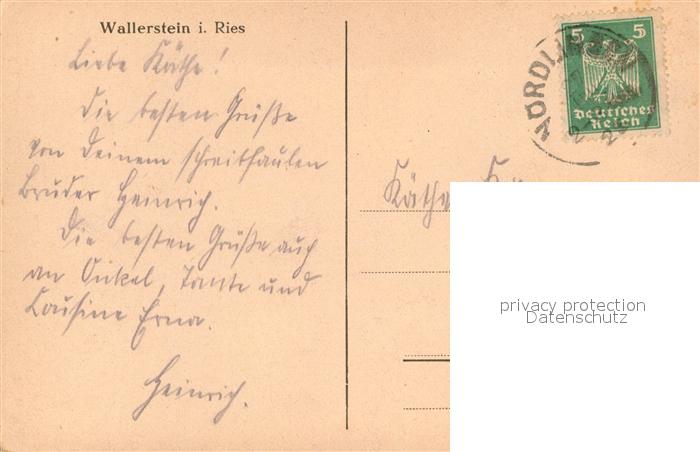 Wallerstein i. Ries
Liebe Käthe!
Die besten Grüße
von Deinem schreibfaulen
Bruder Heinrich.
Die besten Grüße auch
an Onkel, Tante und
Cousine Erna.
Heinrich.
5 5
Deutsches
Reich
Käthe
privacy protection
Datenschutz